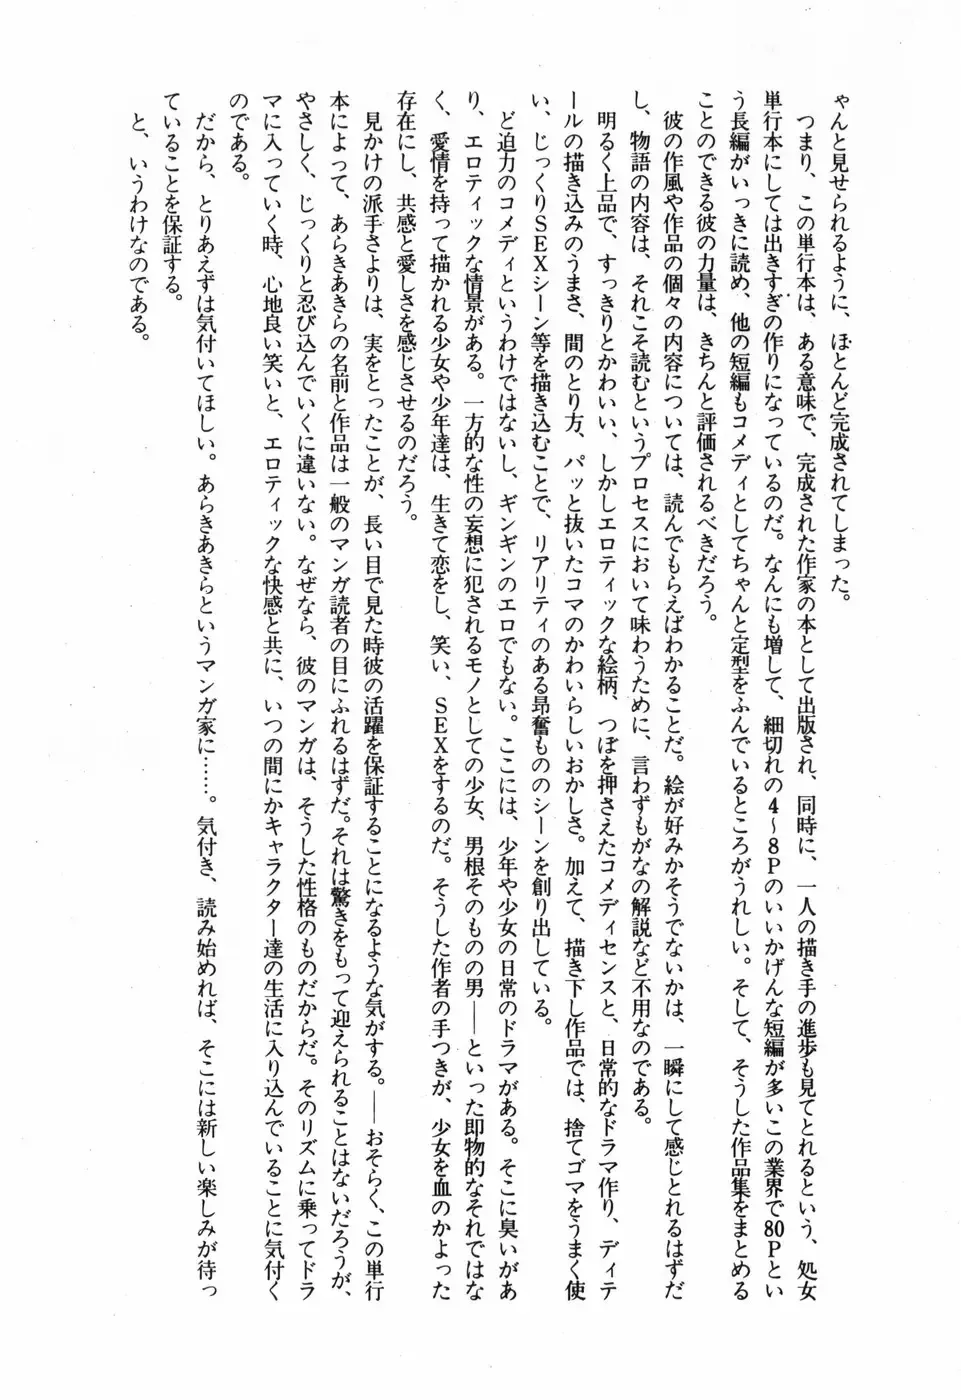 ゃんと見せられるように、ほとんど完成されてしまった。
つまり、この単行本は、ある意味で、完成された作家の本として出版され、同時に、一人の描き手の進歩も見てとれるという、処女
単行本にしては出きすぎの作りになっているのだ。なんにも増して、細切れの4～8Pのいいかげんな短編が多いこの業界で80Pとい
う長編がいっきに読め、他の短編もコメディとしてちゃんと定型をふんでいるところがうれしい。そして、そうした作品集をまとめる
ことのできる彼の力量は、きちんと評価されるべきだろう。
彼の作風や作品の個々の内容については、読んでもらえばわかることだ。絵が好みかそうでないかは、一瞬にして感じとれるはずだ
し、物語の内容は、それこそ読むというプロセスにおいて味わうために、言わずもがなの解説など不用なのである。
明るく上品で、すっきりとかわいい、しかしエロティックな絵柄、つぼを押さえたコメディセンスと、日常的なドラマ作り、ディテ
ールの描き込みのうまさ、間のとり方、パッと抜いたコマのかわいらしいおかしさ。加えて、描き下し作品では、捨てゴマをうまく使
い、じっくりSEXシーン等を描き込むことで、リアリティのある昂奮もののシーンを創り出している。
ど迫力のコメディというわけではないし、ギンギンのエロでもない。ここには、少年や少女の日常のドラマがある。そこに臭いがあ
り、エロティックな情景がある。一方的な性の妄想に犯されるモノとしての少女、男根そのものの男――といった即物的なそれではな
く、愛情を持って描かれる少女や少年達は、生きて恋をし、笑い、SEXをするのだ。そうした作者の手つきが、少女を血のかよった
存在にし、共感と愛しさを感じさせるのだろう。
見かけの派手さよりは、実をとったことが、長い目で見た時彼の活躍を保証することになるような気がする。――おそらく、この単行
本によって、あらきあきらの名前と作品は一般のマンガ読者の目にふれるはずだ。それは驚きをもって迎えられることはないだろうが、
やさしく、じっくりと忍び込んでいくに違いない。なぜなら、彼のマンガは、そうした性格のものだからだ。そのリズムに乗ってドラ
マに入っていく時、心地良い笑いと、エロティックな快感と共に、いつの間にかキャラクター達の生活に入り込んでいることに気付く
のである。
だから、とりあえずは気付いてほしい。あらきあきらというマンガ家に……。気付き、読み始めれば、そこには新しい楽しみが待っ
ていることを保証する。
と、いうわけなのである。